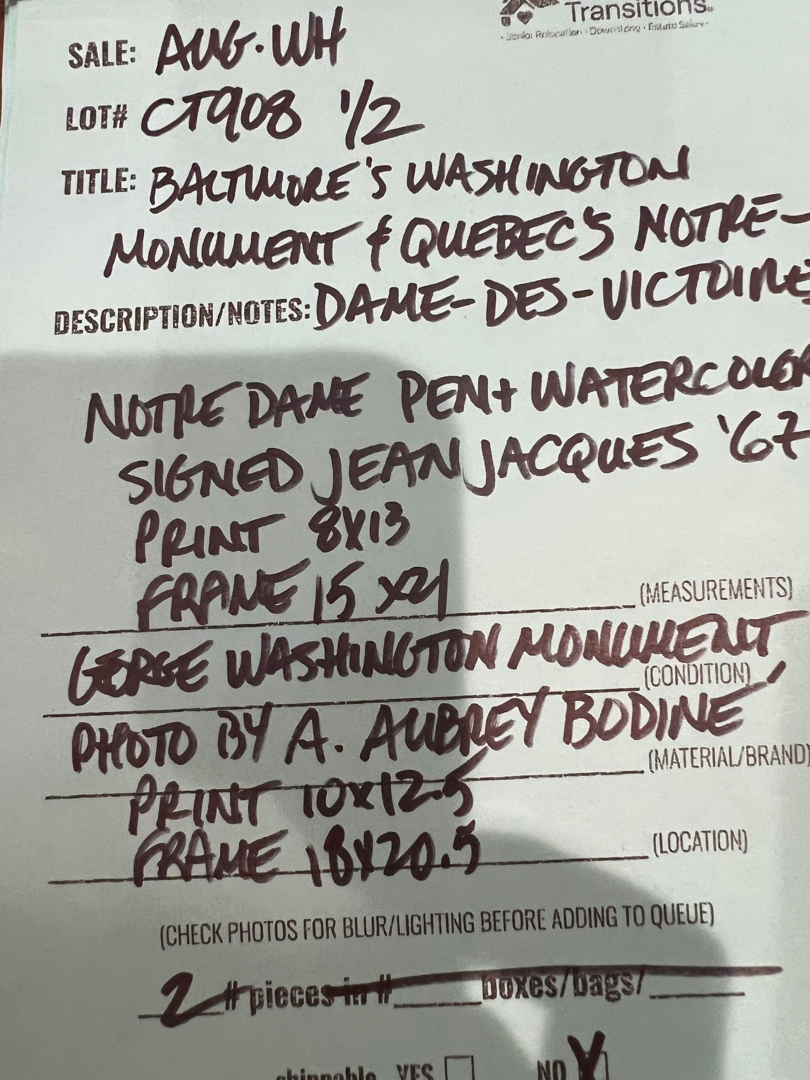 Transitions
Senior Relocation · Downsizing · Estate Sales
SALE: AUG. WH
LOT# CT908 1/2
TITLE: BALTIMORE'S WASHINGTON
MONUMENT & QUEBEC'S NOTRE-
DESCRIPTION/NOTES: DAME-DES-VICTOIRE
NOTRE DAME PEN + WATERCOLOR
SIGNED JEAN JACQUES '67
PRINT 8X13
FRAME 15 X21
(MEASUREMENTS)
GEORGE WASHINGTON MONUMENT
(CONDITION)
PHOTO BY A. AUBREY BODINE
(MATERIAL/BRAND)
PRINT 10X12.5
FRAME 18X20.5
(LOCATION)
(CHECK PHOTOS FOR BLUR/LIGHTING BEFORE ADDING TO QUEUE)
2 # pieces in # boxes/bags/
shippable YES NO X